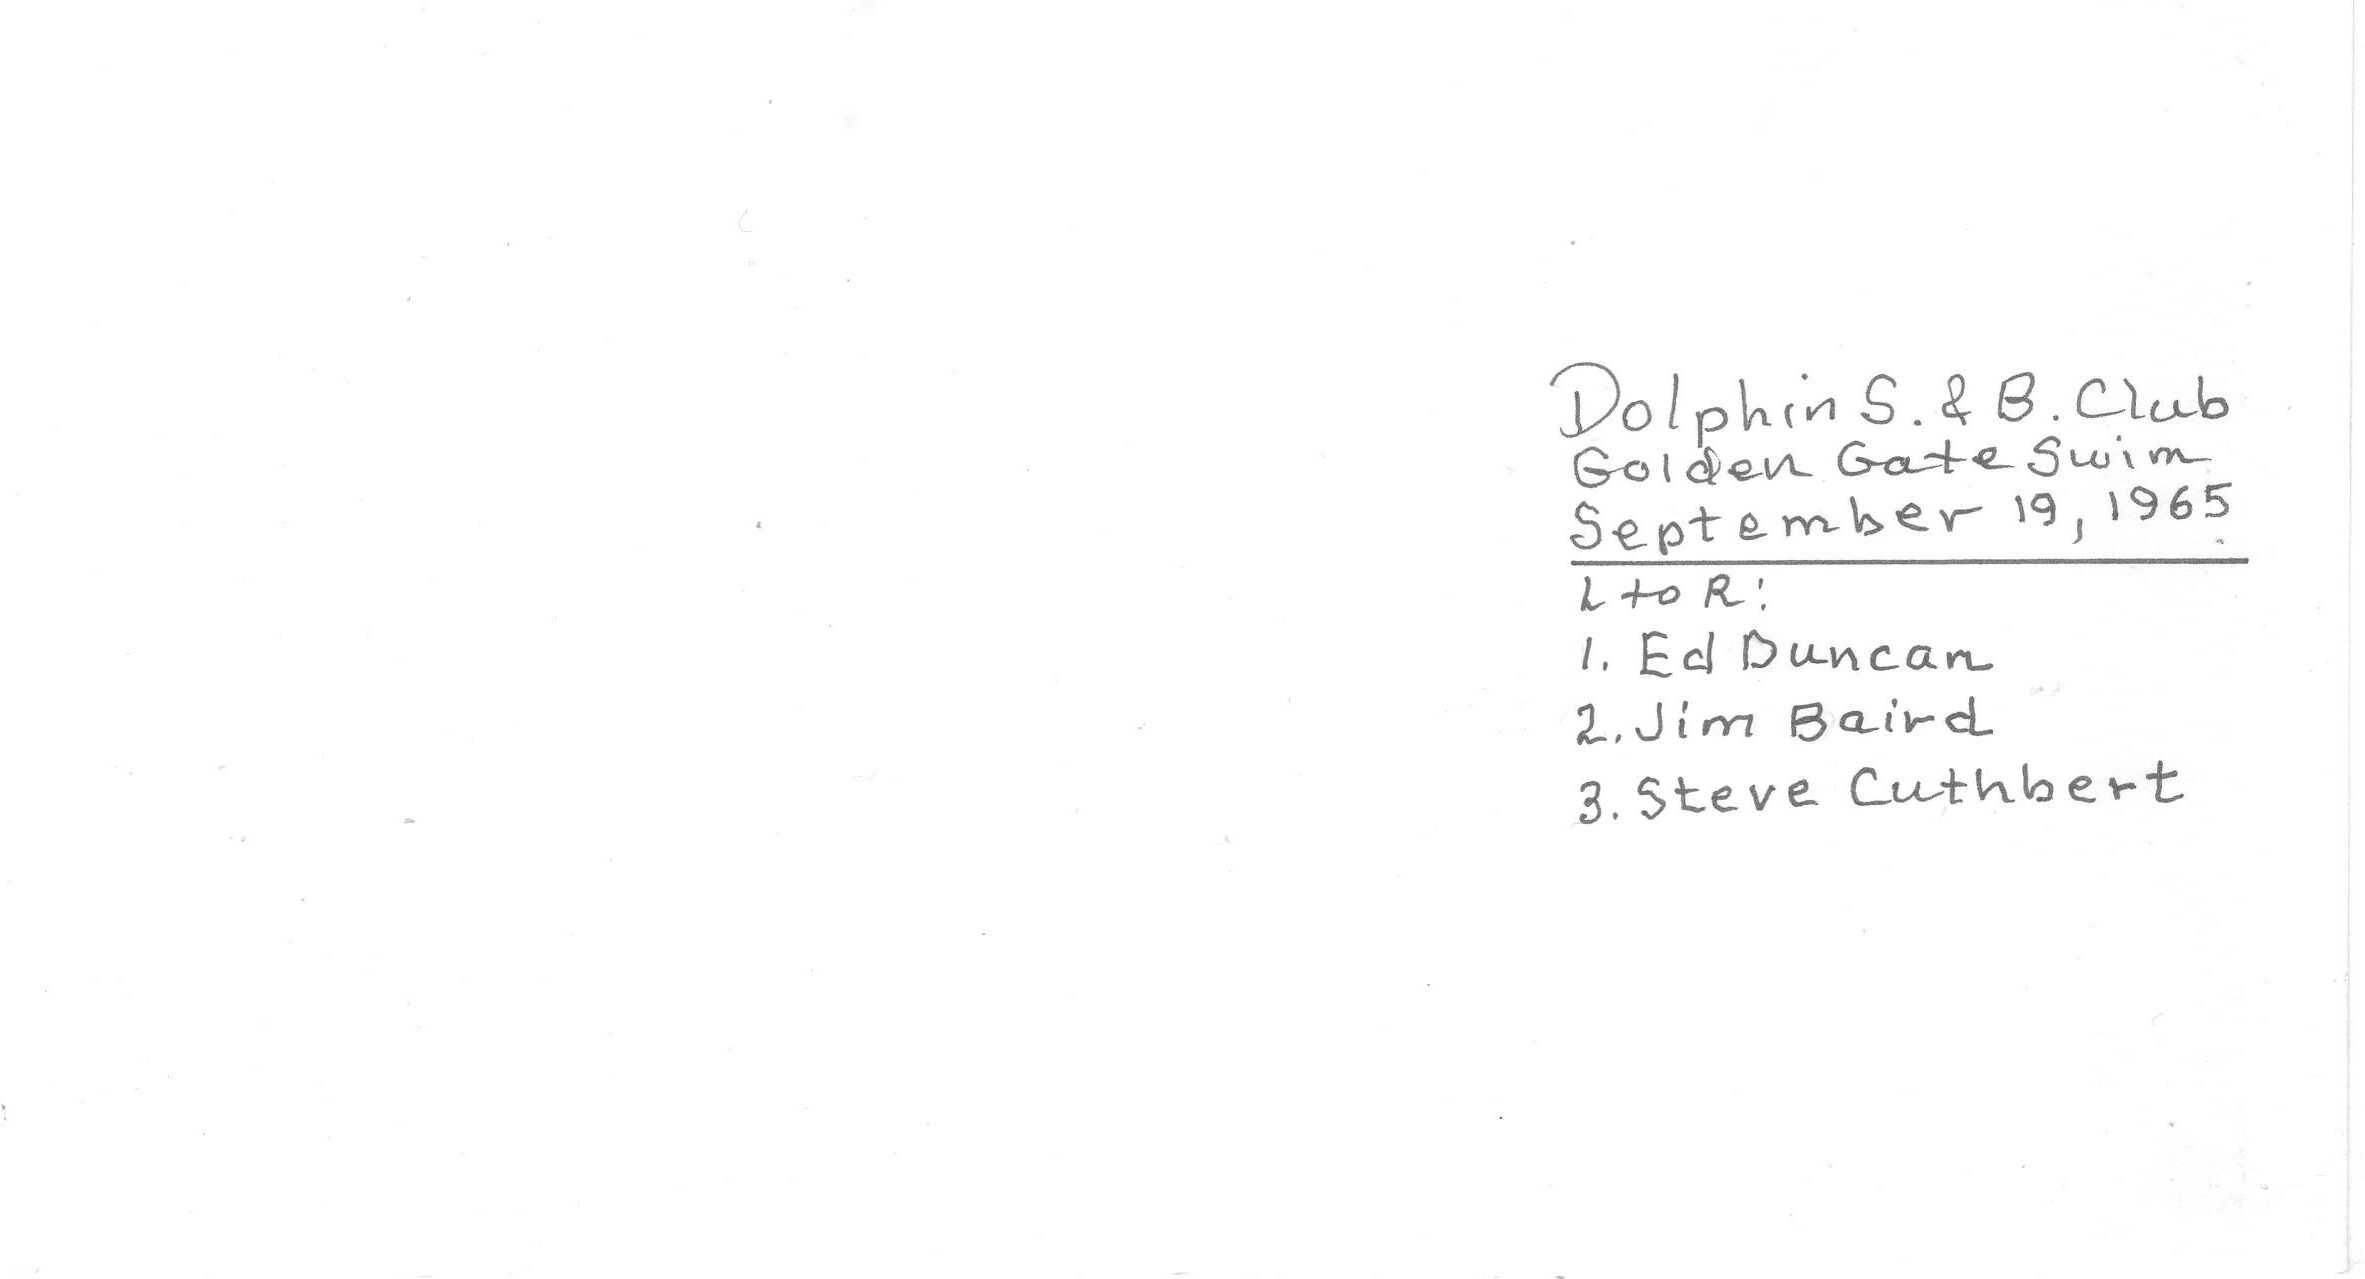 Dolphin S. & B. Club
Golden Gate Swim
September 19, 1965
L to R:
1. Ed Duncan
2. Jim Baird
3. Steve Cuthbert